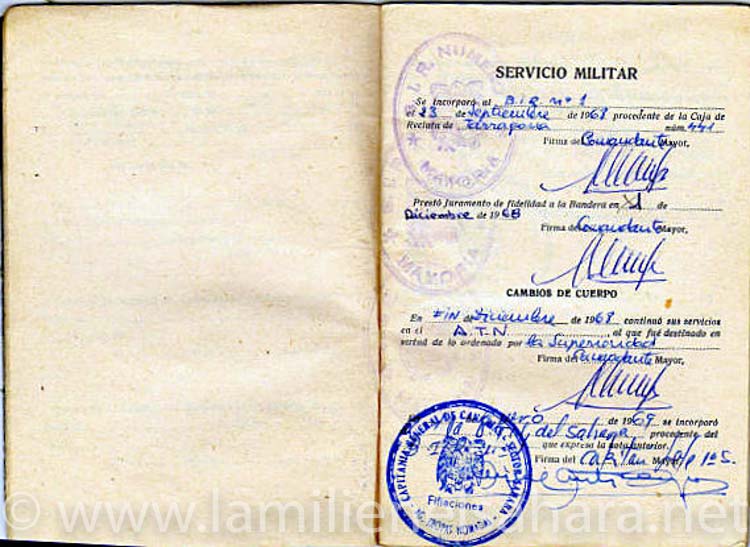 SERVICIO MILITAR
Se incorporó al B.I.R. nº 1
el 23 de Septiembre de 1968 procedente de la Caja de
Recluta de Tarragona núm. 441
Firma del Comandante Mayor,
Prestó Juramento de fidelidad a la Bandera en 1 de
Diciembre de 1968
Firma del Comandante Mayor,
CAMBIOS DE CUERPO
En FIN de Diciembre de 1968 continuó sus servicios
en el A.T.N , al que fué destinado en
virtud de lo ordenado por la Superioridad
Firma del Comandante Mayor,
de 1969 se incorporó
del Sahara procedente del
que expresa la nota anterior.
Firma del Capitan Mayor,
B.I.R. NUMERO
MAYORIA
MAYORIA
CAPITANIA GENERAL DE CANARIAS - SECTOR SAHARA
Filiaciones
© www.lamilienelsahara.net